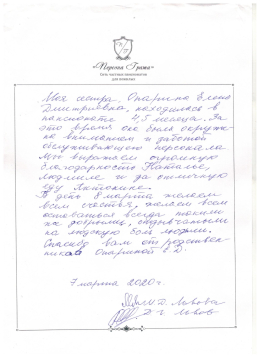 «Первая Грація»
Сеть частных пансионатов
для пожилых
Моя сестра, Опарина Елена
Дмитриевна, находилась в
пансионате 4,5 месяца. За
это время она была окруже-
на вниманием и заботой
обслуживающего персонала.
Мы выражаем огромную
благодарность Наталье,
Людмиле и за отличную
еду Антонине.
В день 8 марта желаем
всем счастья, желаем всем
оставаться всегда такими
же добрыми, отзывчивыми
на людскую боль людьми.
Спасибо вам от родствен-
ников Опариной Е.Д.
7 марта 2020г.
М.Д. Львова
Львов